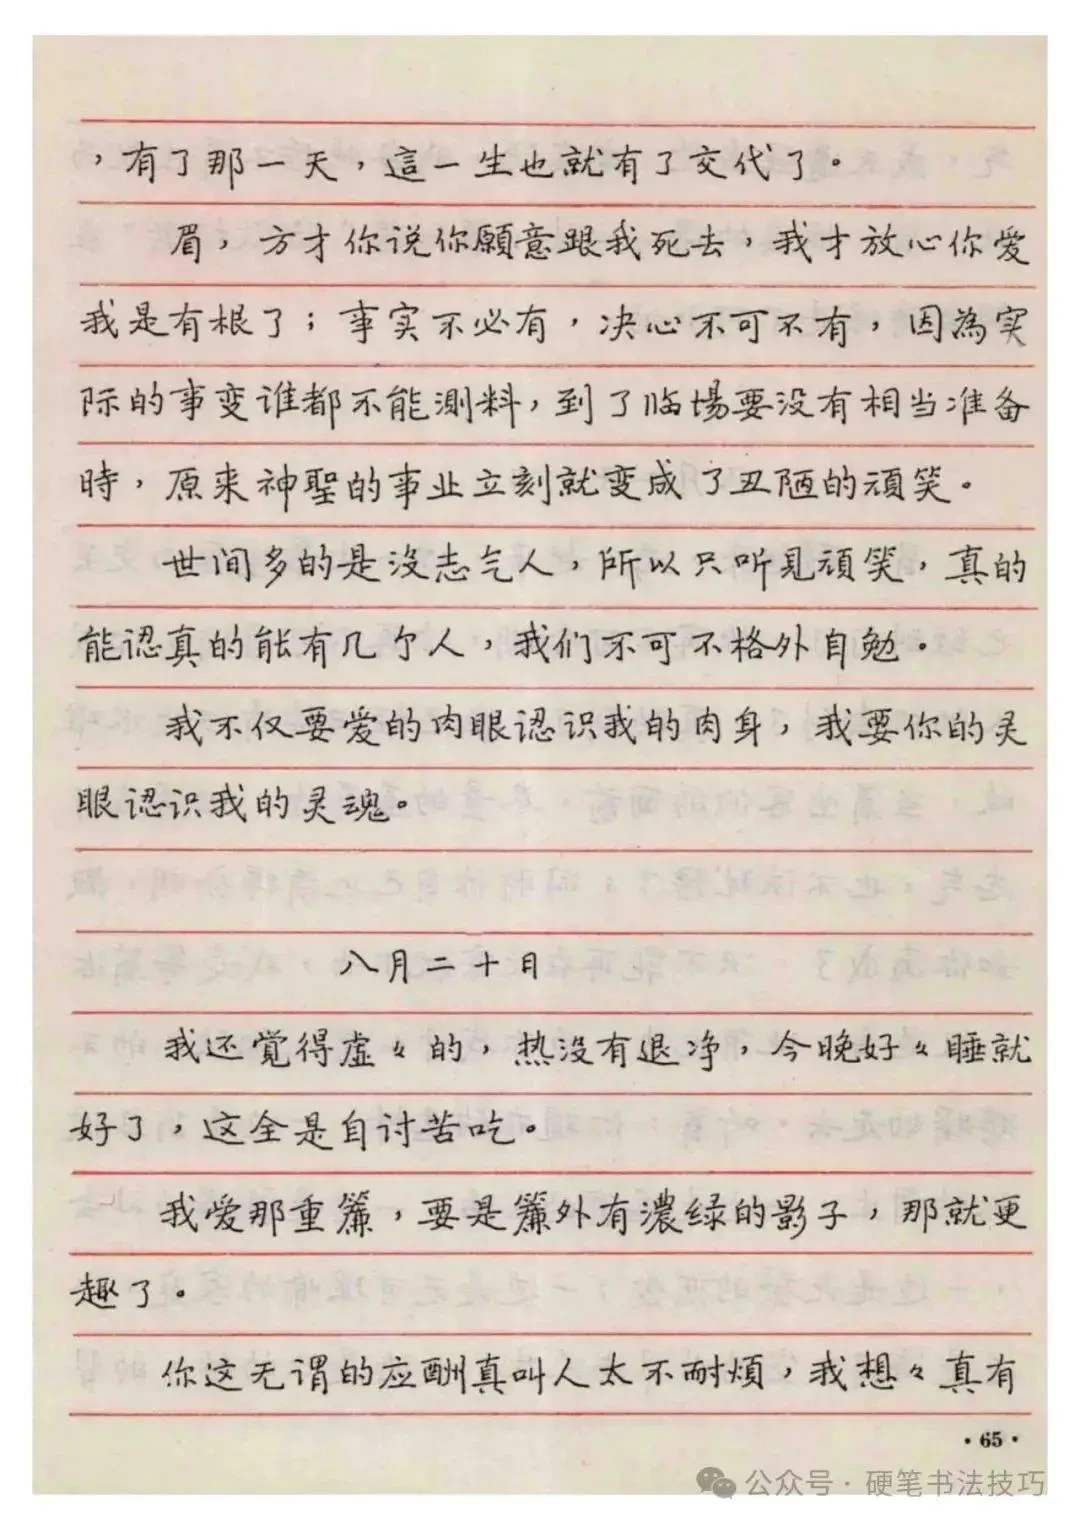 ，有了那一天，這一生也就有了交代了。
眉，方才你说你願意跟我死去，我才放心你爱
我是有根了；事实不必有，决心不可不有，因為实
际的事变谁都不能测料，到了临場要没有相当准备
時，原来神聖的事业立刻就变成了丑陋的頑笑。
世间多的是没志气人，所以只听見頑笑，真的
能認真的能有几个人，我们不可不格外自勉。
我不仅要爱的肉眼認识我的肉身，我要你的灵
眼認识我的灵魂。
八月二十日
我还覺得虚々的，热没有退净，今晚好々睡就
好了，这全是自讨苦吃。
我爱那重簾，要是簾外有濃绿的影子，那就更
趣了。
你这无谓的应酬真叫人太不耐煩，我想々真有
·65·
公众号·硬笔书法技巧